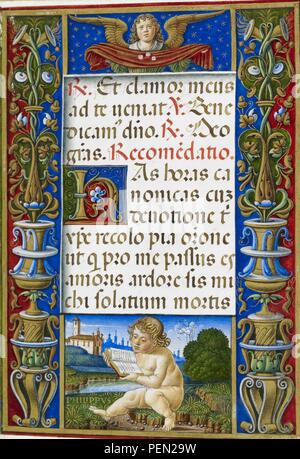 R. Et clamor meus
ad te ueniat. V. Bene
dicam' dño. R. Deo
gras. Recomēdatio.
HAs horas ca
nonicas cuʒ
deuotione t̄
xp̄e recolo pia orone
ut q pro me passus es
amoris ardore sis mi
chi solatium mortis
PHILIPPVS
alamy - PEN29W